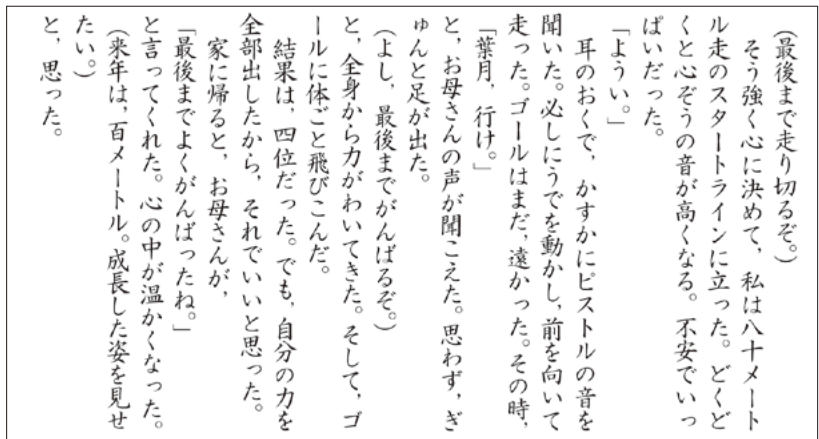 (最後まで走り切るぞ。)
　そう強く心に決めて，私は八十メート
ル走のスタートラインに立った。どくど
くと心ぞうの音が高くなる。不安でいっ
ぱいだった。
「ようい。」
　耳のおくで，かすかにピストルの音を
聞いた。必しにうでを動かし，前を向いて
走った。ゴールはまだ，遠かった。その時，
「葉月，行け。」
と，お母さんの声が聞こえた。思わず，ぎ
ゅんと足が出た。
(よし，最後までがんばるぞ。)
と，全身から力がわいてきた。そして，ゴ
ールに体ごと飛びこんだ。
　結果は，四位だった。でも，自分の力を
全部出したから，それでいいと思った。
　家に帰ると，お母さんが，
「最後までよくがんばったね。」
と言ってくれた。心の中が温かくなった。
(来年は，百メートル。成長した姿を見せ
たい。)
と，思った。